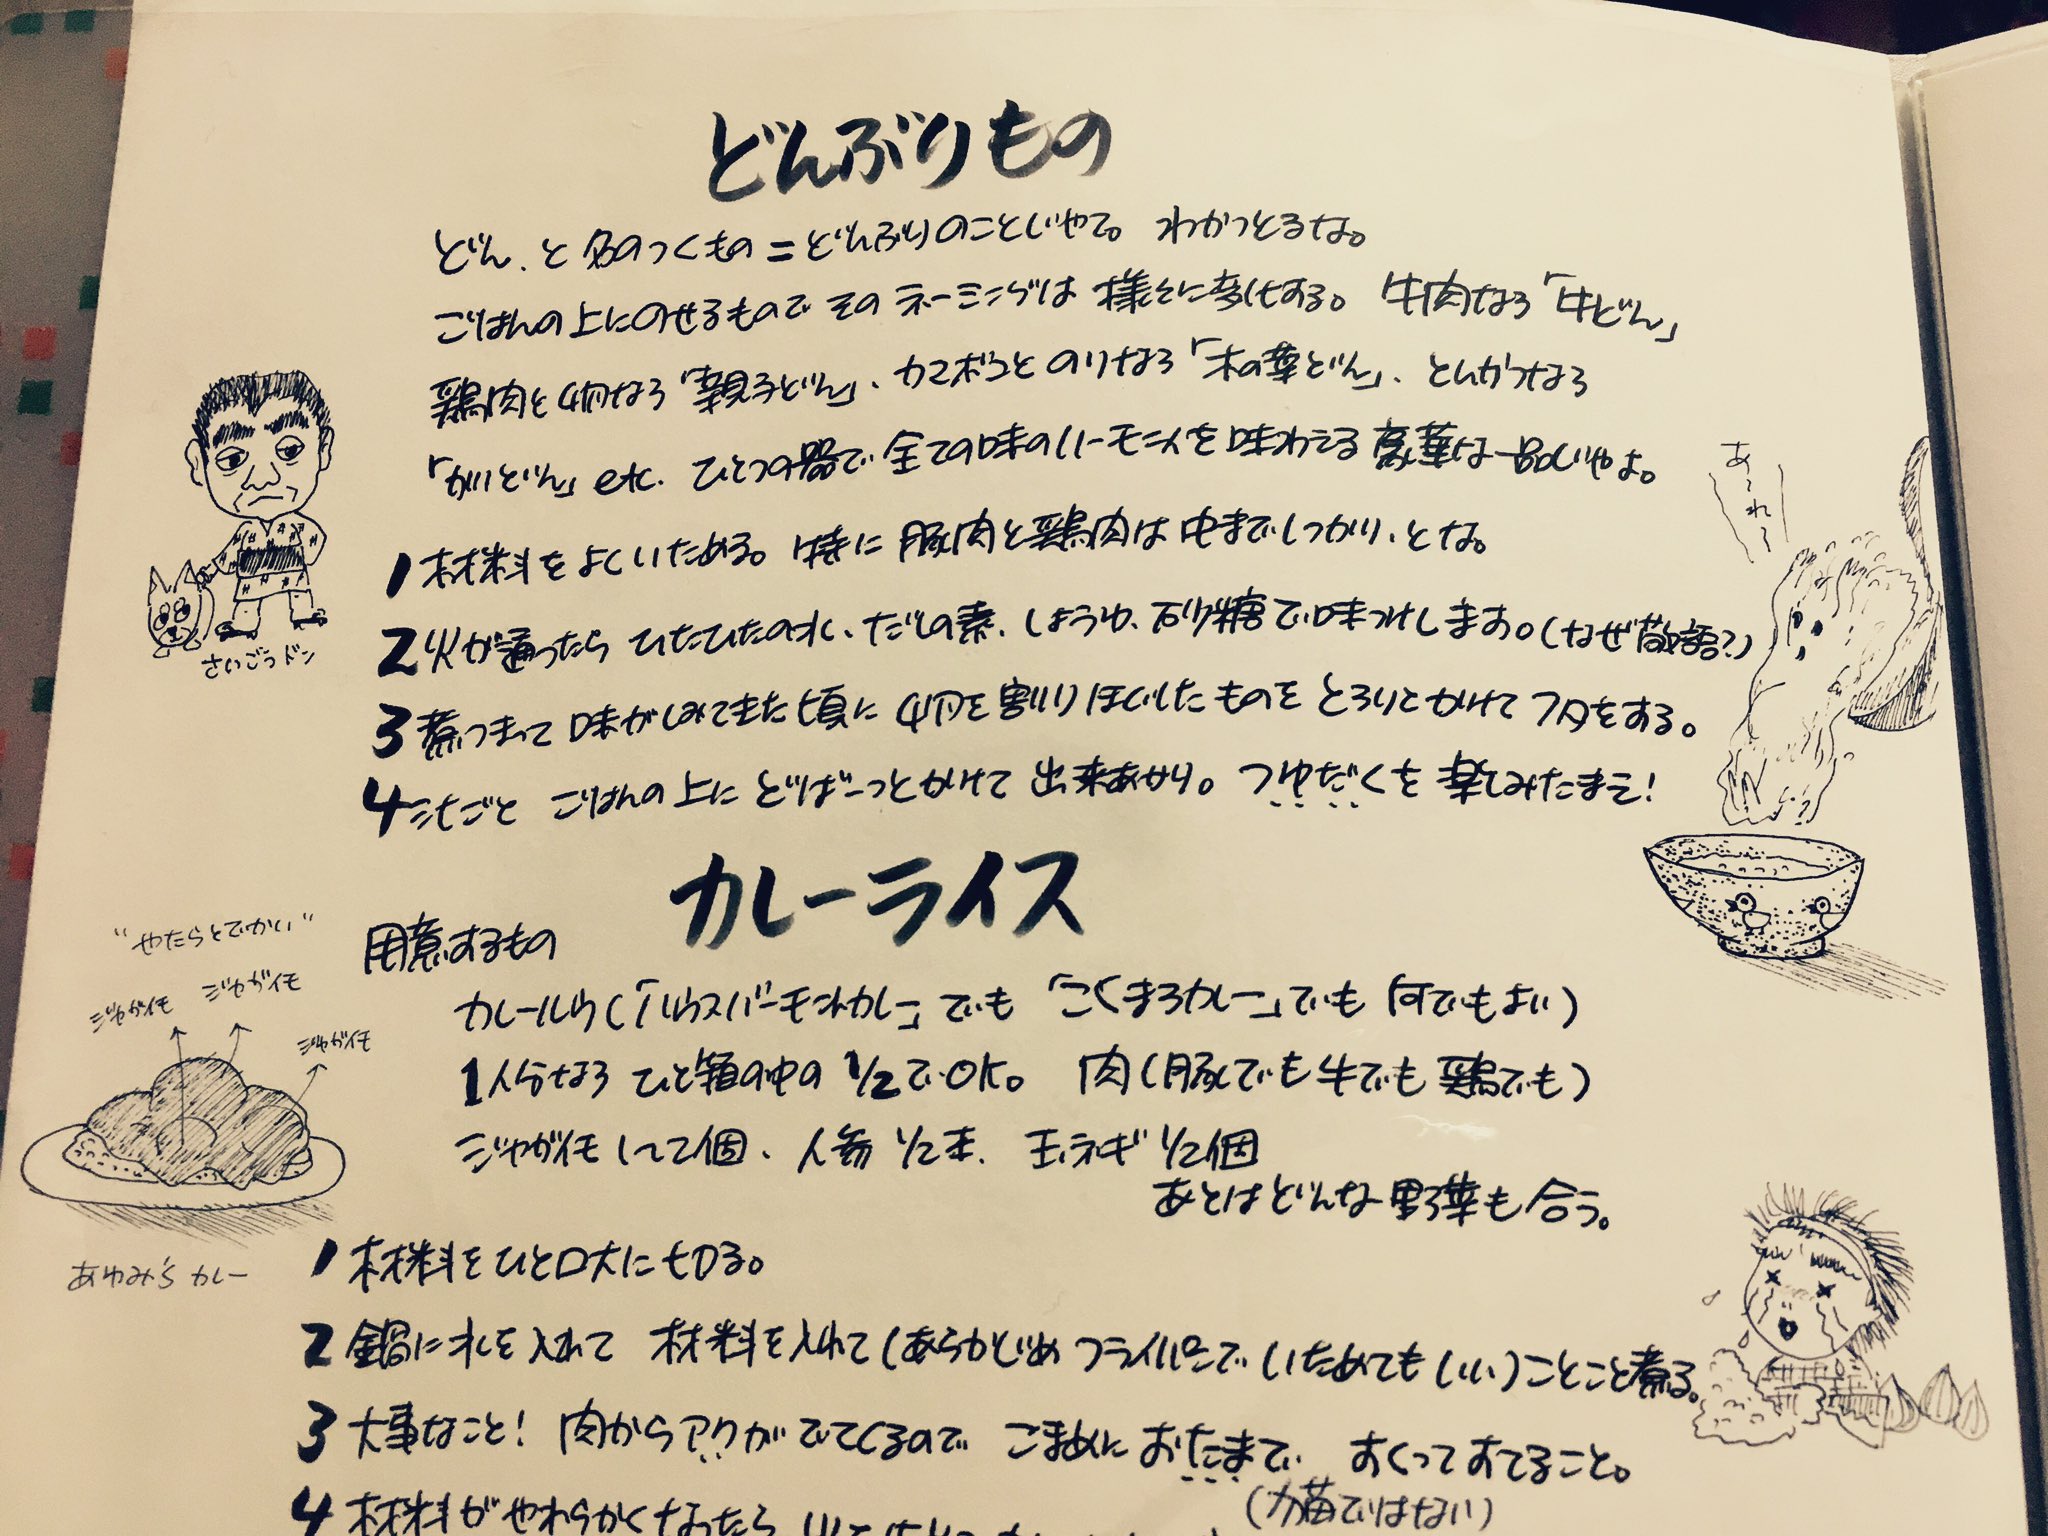 どんぶりもの
どん、と名のつくもの=どんぶりのことじゃて。わかっとるな。
ごはんの上にのせるもので そのネーミングは 様々に変化する。 牛肉なら「牛どん」
鶏肉と卵なら「親子どん」、カマボコとのりなら「木の葉どん」、とんかつなら
「かつどん」etc. ひとつの器で 全ての味のハーモニーを味わえる 豪華な一品じゃよ。
1 材料をよくいためる。特に 豚肉と鶏肉は 中までしっかり、とな。
2 火が通ったら ひたひたの水、だしの素、しょうゆ、砂糖で味つけします。(なぜ敬語?)
3 煮つまって 味がしみてきた頃に 卵を割りほぐしたものを とろりとかけて フタをする。
4 汁ごと ごはんの上に どばーっとかけて 出来あがり。 つゆだくを 楽しみたまえ!
さいごうドン
あ〜れ〜
カレーライス
用意するもの
カレールウ(「ハウスバーモントカレー」でも 「こくまろカレー」でも 何でもよい)
1人分なら ひと箱の中の 1/2でOK。 肉(豚でも 牛でも 鶏でも)
ジャガイモ 1〜2個、人参 1/2本、玉ネギ 1/2個
あとはどんな野菜も合う。
"やたらとでかい"
ジャガイモ
ジャガイモ
ジャガイモ
あゆみ'S カレー
1 材料をひと口大に切る。
2 鍋に水を入れて 材料を入れて(あらかじめ フライパンで いためてもいい)ことこと煮る。
3 大事なこと! 肉からアクが でてくるので こまめに おたまで すくって すてること。
(猫ではない)
4 材料が やわらかくなったら